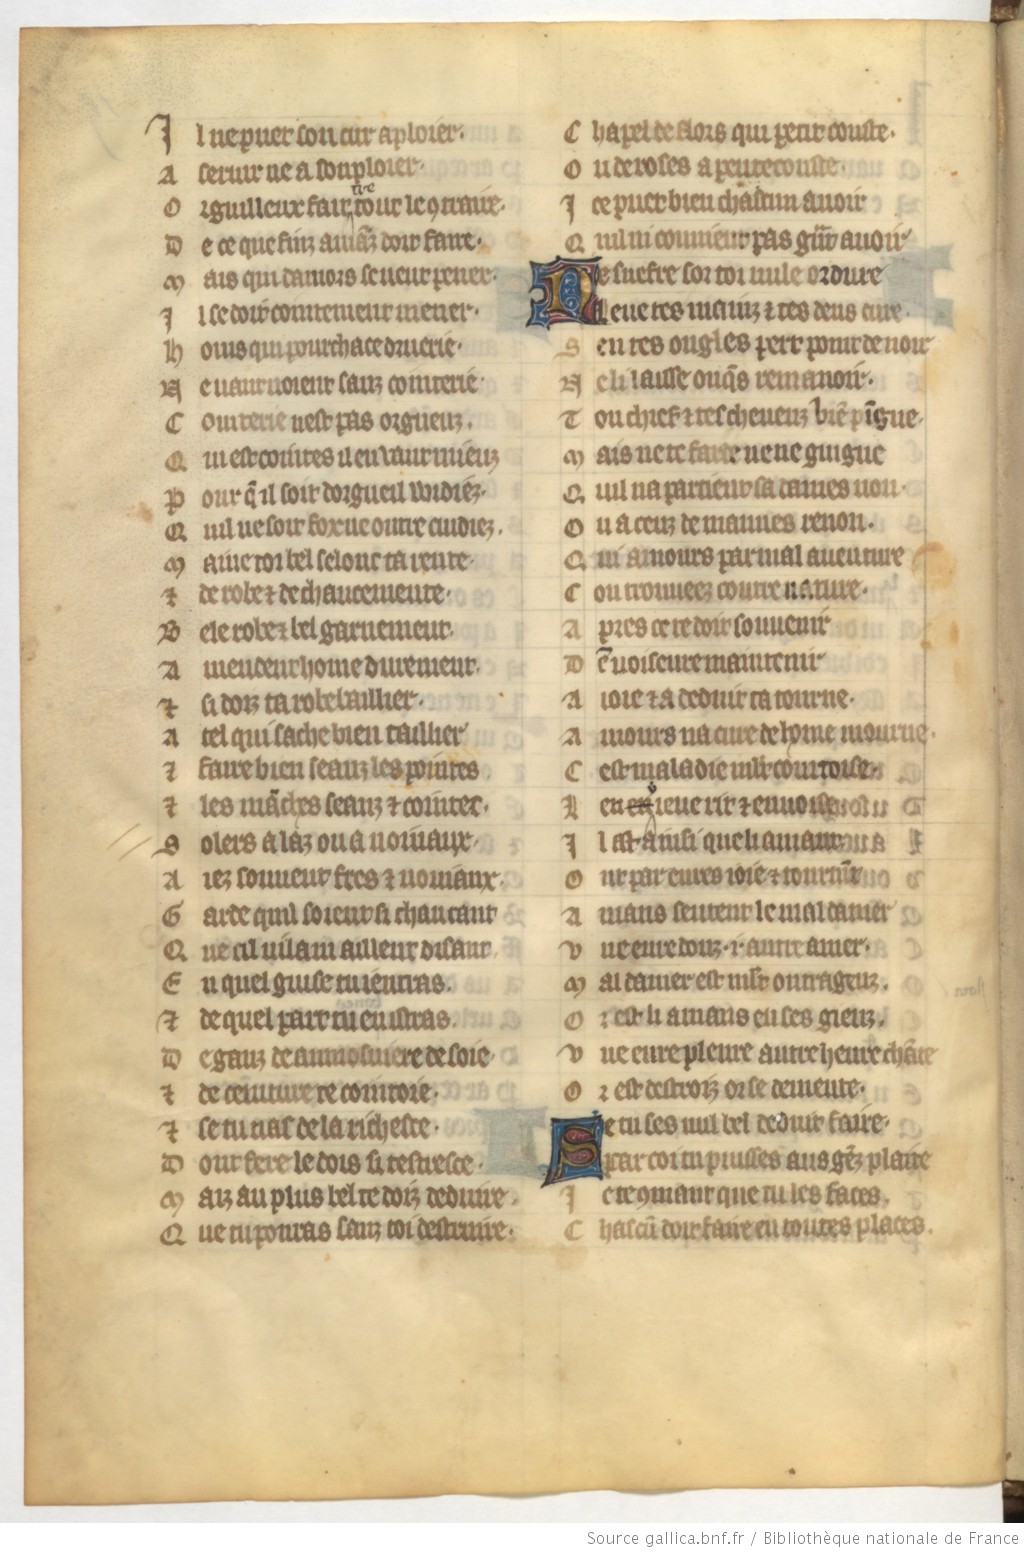 Il ne puet son cuer aploier.
A servir ne a souploier.
Orguilleux fait tout le 9traire.
De ce que finz amãz doit faire.
Mais qui damors se veut pener.
Il se doit cointement mener.
Hons qui pourchace druerie.
Ne vaut noient sanz cointerie.
Cointerie nest pas orgueuz.
Qui est cointes il en vaut mieuz
Pour q̃ il soit dorgueil vuidiez.
Quil ne soit fox ne outre cuidiez.
Maine toi bel selonc ta rente.
⁊ de robe ⁊ de chaucemente.
Bele robe ⁊ bel garnement.
Amendent home durement.
⁊ si doiz ta robe baillier.
A tel qui sache bien taillier
⁊ faire bien seanz les pointes
⁊ les mãches seanz ⁊ cointes.
Solers a laz ou a noiviaux.
Aiez souvent fres ⁊ noviaux.
Garde quil soient si chaucant
Que cil vilain aillent disant
En quel guise tu i entras.
⁊ de quel part tu en istras.
De ganz de aumosniere de soie.
⁊ de ceinture te cointoie.
⁊ se tu nas de la richesce.
Dont fere le dois si testresce.
Maiz au plus bel te doiz deduire.
Que tu pouras sanz toi destruire.
Chapel de flors qui petit couste.
Ou de roses a pentecouste.
Ice puet bien chascun avoir
Quil ni convient pas grãt avoir
Ne suefre sor toi nule ordure
Leve tes mainz ⁊ tes dens cure.
Sen tes ongles pert point de noir
Ne li laisse onq̃s remanoir.
Tou chief ⁊ tes cheveuz biẽ pigne.
Mais ne te farde ne ne guigne
Quil napartient sa dames non.
Ou a ceuz de mauves renon.
Qui amours par mal aventure
Cont trouvees contre nature.
Apres ce te doit souvenir
Dẽvoiseure maintenir
A ioie ⁊ a deduit ta tourne.
Amours na cure de home mourne.
Cest maladie mlt courtoise.
Len en ieue rit ⁊ envoise
Il est ainsi que li amant
Ont par eures ioie ⁊ tourmẽt
Amans sentent le mal damer
Une eure douz. i autre amer.
Mal damer est mlt outrageuz.
Or est li amans en ses gieuz.
Une eure pleure autre heure chãte
Or est destroiz or se demente.
Se tu ses nul bel deduit faire.
Par coi tu puisses aus gẽz plaire
Ie te 9mant que tu les faces.
Chascũ doit faire en toutes places.
Source gallica.bnf.fr / Bibliothèque nationale de France